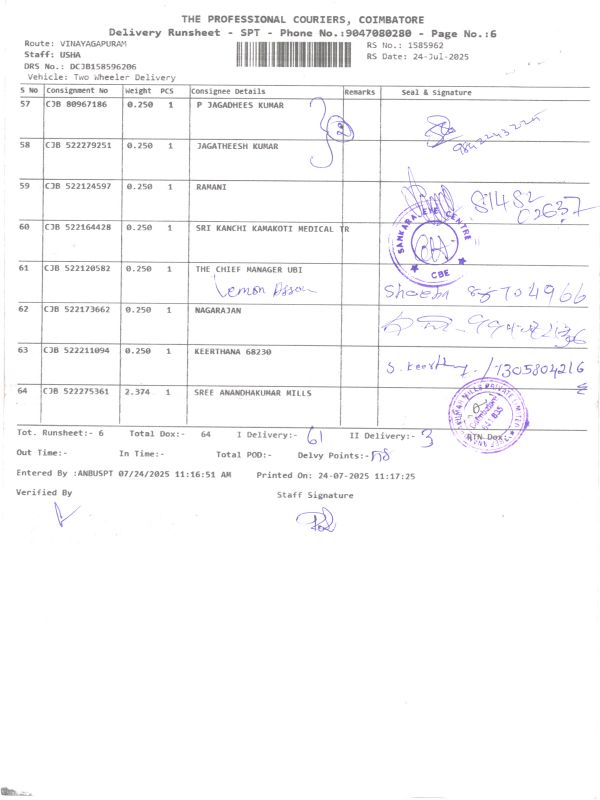 THE PROFESSIONAL COURIERS, COIMBATORE
Delivery Runsheet - SPT - Phone No.:9047080280 - Page No.:6
Route: VINAYAGAPURAM RS No.: 1585962
Staff: USHA RS Date: 24-Jul-2025
DRS No.: DCJB158596206
Vehicle: Two Wheeler Delivery
S No Consignment No Weight PCS Consignee Details Remarks Seal & Signature
57 CJB 80967186 0.250 1 P JAGADHEES KUMAR
58 CJB 522279251 0.250 1 JAGATHEESH KUMAR
59 CJB 522124597 0.250 1 RAMANI 81482
02637
60 CJB 522164428 0.250 1 SRI KANCHI KAMAKOTI MEDICAL TR
SANKARA EYE CENTRE
CBE
61 CJB 522120582 0.250 1 THE CHIEF MANAGER UBI
Lemon
62 CJB 522173662 0.250 1 NAGARAJAN
63 CJB 522211094 0.250 1 KEERTHANA 68230
S. Keerthana / 7305804216
64 CJB 522275361 2.374 1 SREE ANANDHAKUMAR MILLS
Tot. Runsheet:- 6 Total Dox:- 64 I Delivery:- 61 II Delivery:- 3 RTN Dox:
Out Time:- In Time:- Total POD:- Delvy Points:-
Entered By :ANBUSPT 07/24/2025 11:16:51 AM Printed On: 24-07-2025 11:17:25
Verified By Staff Signature